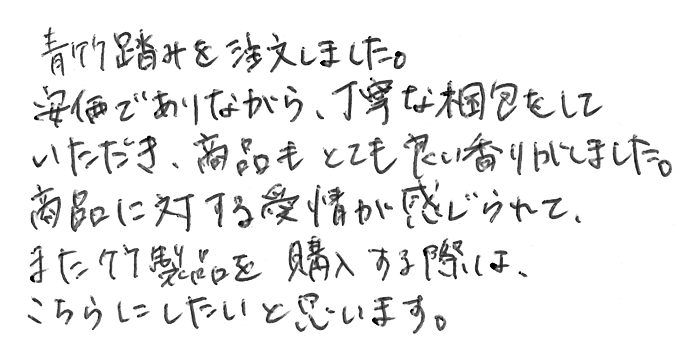 青竹踏みを注文しました。
安価でありながら、丁寧な梱包をして
いただき、商品もとても良い香りがしました。
商品に対する愛情が感じられて、
また竹製品を購入する際は、
こちらにしたいと思います。